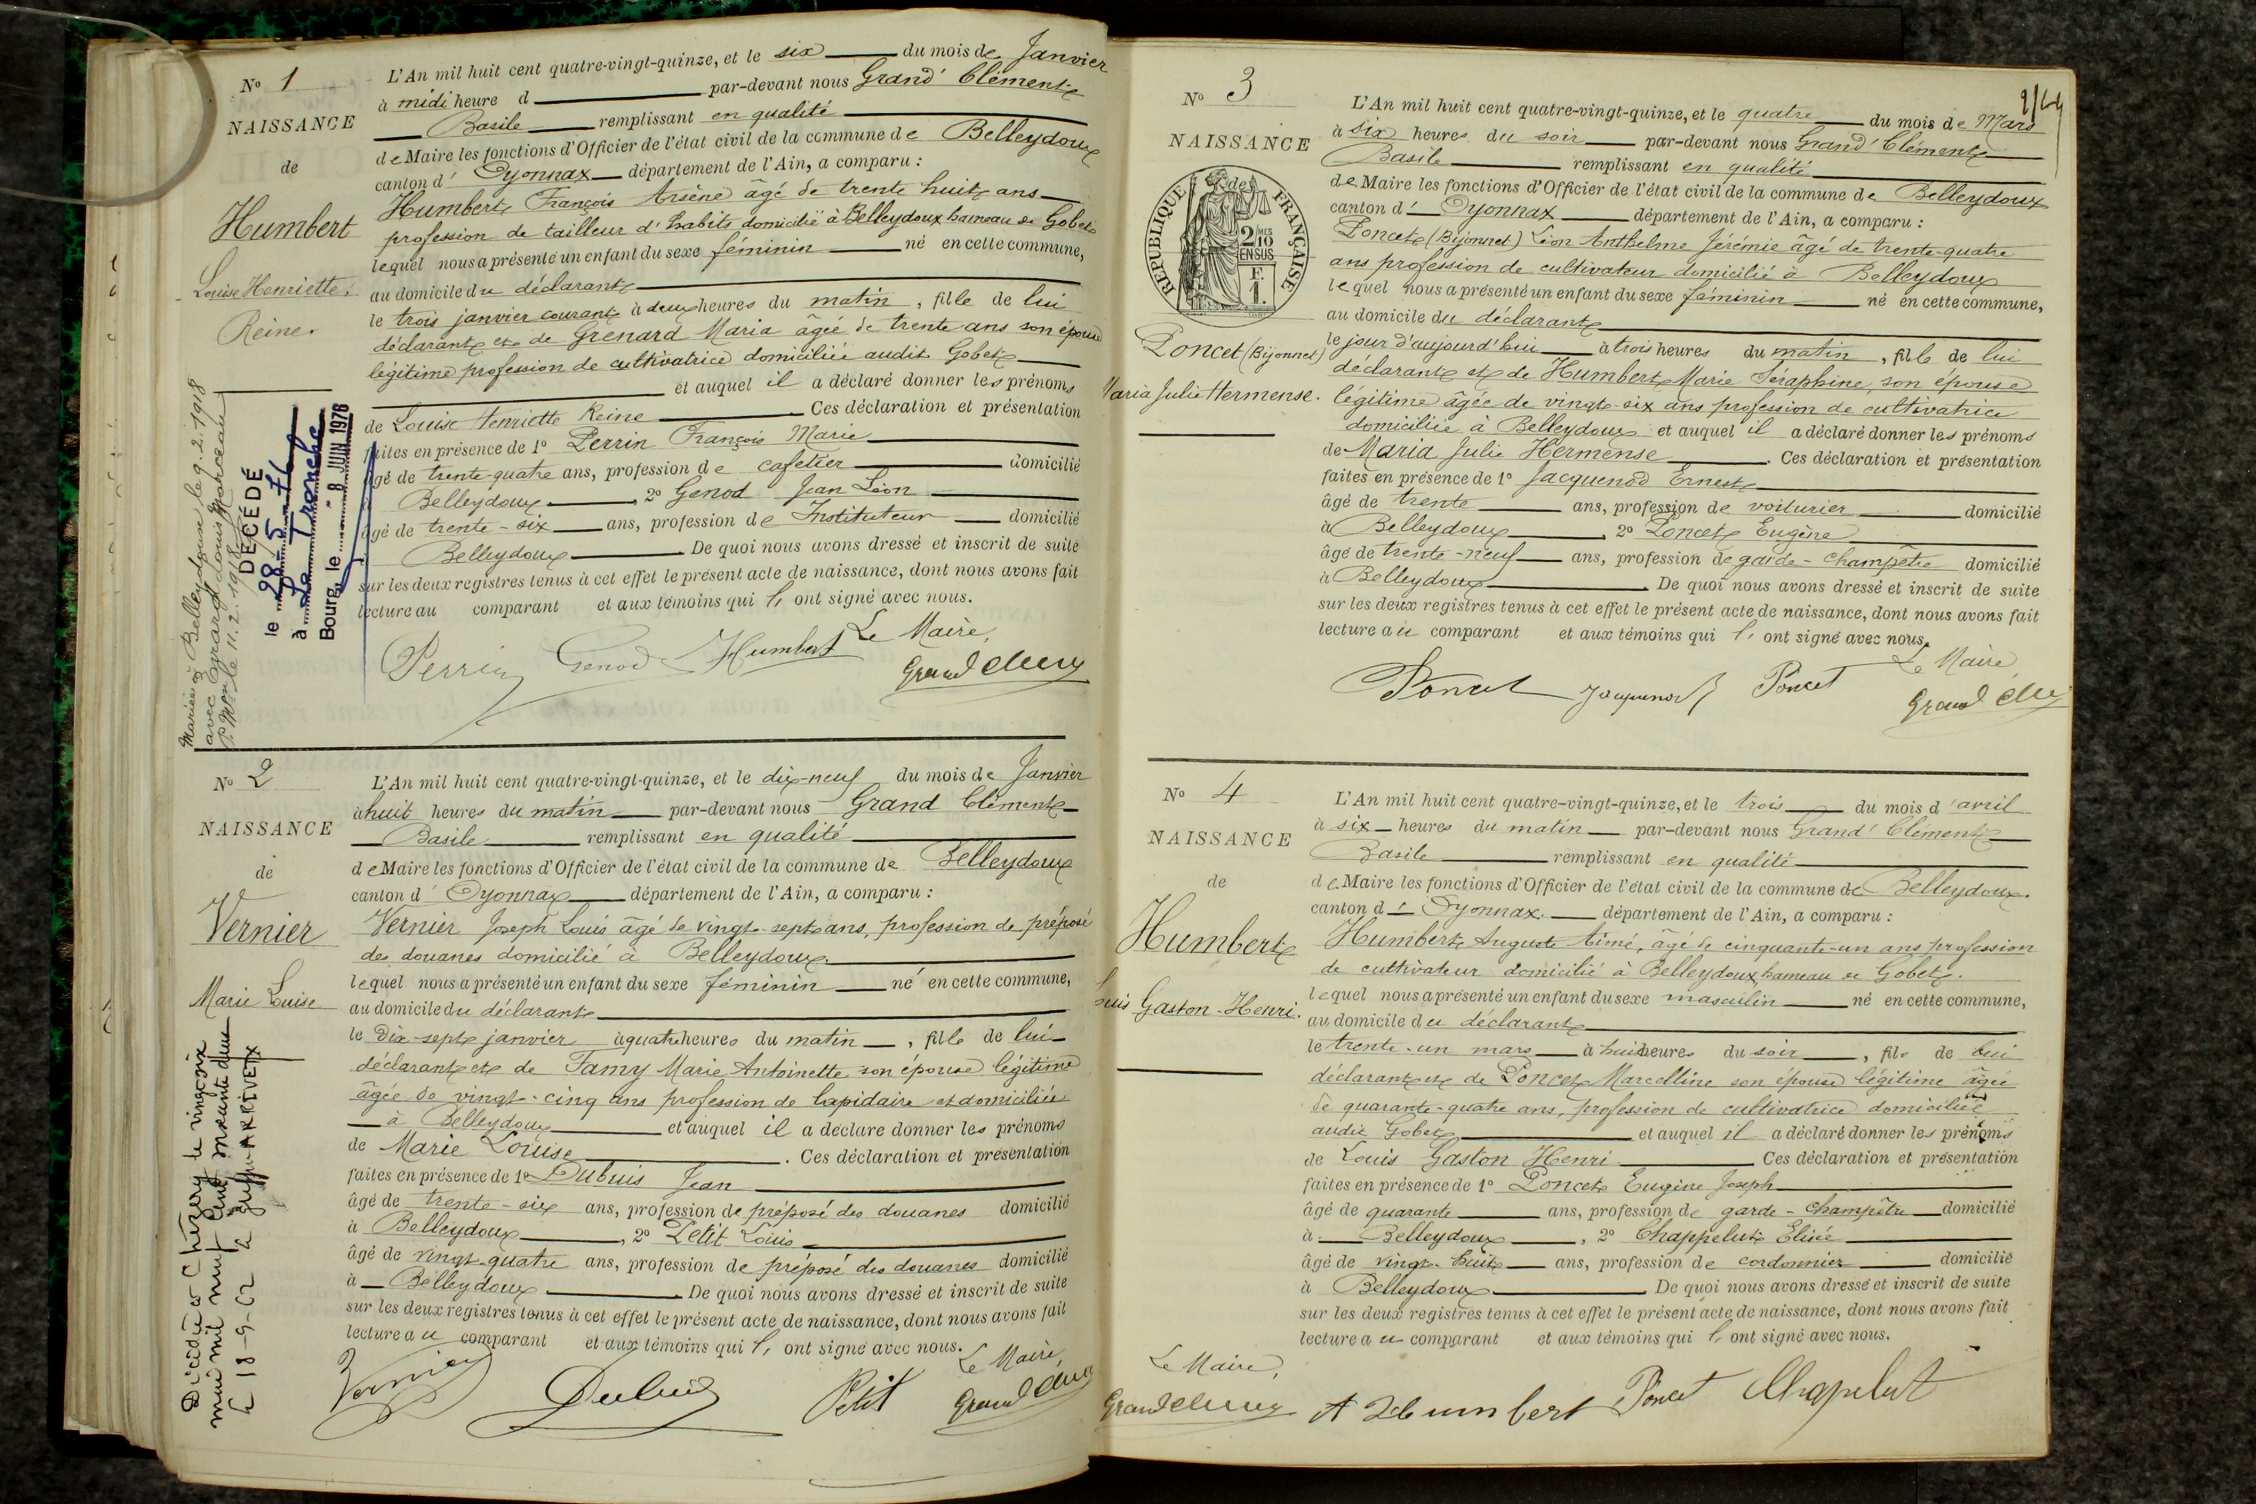 N° 1
NAISSANCE
de
Humbert
Louise Henriette
Reine.
L'An mil huit cent quatre-vingt-quinze, et le six du mois de Janvier
à midi heure d par-devant nous Grand Clément
Basile remplissant en qualité
de Maire les fonctions d'Officier de l'état civil de la commune de Belleydoux
canton d' Oyonnax département de l'Ain, a comparu :
Humbert François Arsène âgé de trente huit ans
profession de tailleur d'habits domicilié à Belleydoux hameau de Gobet
lequel nous a présenté un enfant du sexe féminin né en cette commune,
au domicile du déclarant
le trois janvier courant à deux heures du matin, fille de lui
déclarant et de Grenard Maria âgée de trente ans son épouse
légitime profession de cultivatrice domiciliée audit Gobet
et auquel il a déclaré donner les prénoms
de Louise Henriette Reine Ces déclaration et présentation
faites en présence de 1° Perrin François Marie
âgé de trente quatre ans, profession de cafetier domicilié
Belleydoux 2° Genod Jean Léon
âgé de trente-six ans, profession de Instituteur domicilié
Belleydoux De quoi nous avons dressé et inscrit de suite
sur les deux registres tenus à cet effet le présent acte de naissance, dont nous avons fait
lecture au comparant et aux témoins qui l' ont signé avec nous.
Le Maire,
Perrin Genod Humbert Grand Clém
Mariée à Belleydoux le 9.2.1918
avec Louis Marceau
le 11.2.1918
DÉCÉDÉ
le 28-5-76
à La Tronche
Bourg, le - 8 JUIN 1976
N° 2
NAISSANCE
de
Vernier
Marie Louise
L'An mil huit cent quatre-vingt-quinze, et le dix-neuf du mois de Janvier
à huit heures du matin par-devant nous Grand Clément
Basile remplissant en qualité
de Maire les fonctions d'Officier de l'état civil de la commune de Belleydoux
canton d' Oyonnax département de l'Ain, a comparu :
Vernier Joseph Louis âgé de vingt-sept ans, profession de préposé
des douanes domicilié à Belleydoux.
lequel nous a présenté un enfant du sexe féminin né en cette commune,
au domicile du déclarant
le dix-sept janvier à quatre heures du matin, fille de lui
déclarant et de Famy Marie Antoinette son épouse légitime
âgée de vingt-cinq ans profession de lapidaire et domiciliée
à Belleydoux et auquel il a déclaré donner les prénoms
de Marie Louise. Ces déclaration et présentation
faites en présence de 1° Dubuis Jean
âgé de trente-six ans, profession de préposé des douanes domicilié
à Belleydoux, 2° Petit Louis
âgé de vingt-quatre ans, profession de préposé des douanes domicilié
à Belleydoux De quoi nous avons dressé et inscrit de suite
sur les deux registres tenus à cet effet le présent acte de naissance, dont nous avons fait
lecture au comparant et aux témoins qui l' ont signé avec nous.
Le Maire,
Vernier Dubuis Petit Grand Clém
Décédée à Chézery le vingt six
mai mil neuf cent soixante deux
le 18-9-62 le greffier ARRIVETX
N° 3
NAISSANCE
de
REPUBLIQUE FRANÇAISE
2 MES
10
EN SUS
F.
1.
Poncet (Bijonnet)
Maria Julie Hermense.
2/44
L'An mil huit cent quatre-vingt-quinze, et le quatre du mois de Mars
à six heures du soir par-devant nous Grand Clément
Basile remplissant en qualité
de Maire les fonctions d'Officier de l'état civil de la commune de Belleydoux
canton d' Oyonnax département de l'Ain, a comparu :
Poncet (Bijonnet) Léon Anthelme Jérémie âgé de trente-quatre
ans profession de cultivateur domicilié à Belleydoux
lequel nous a présenté un enfant du sexe féminin né en cette commune,
au domicile du déclarant
le jour d'aujourd'hui à trois heures du matin, fille de lui
déclarant et de Humbert Marie Séraphine, son épouse
légitime âgée de vingt-six ans profession de cultivatrice
domiciliée à Belleydoux et auquel il a déclaré donner les prénoms
de Maria Julie Hermense. Ces déclaration et présentation
faites en présence de 1° Jacquenod Ernest
âgé de trente ans, profession de voiturier domicilié
à Belleydoux, 2° Poncet Eugène
âgé de trente-neuf ans, profession de garde-champêtre domicilié
à Belleydoux De quoi nous avons dressé et inscrit de suite
sur les deux registres tenus à cet effet le présent acte de naissance, dont nous avons fait
lecture au comparant et aux témoins qui l' ont signé avec nous.
Le Maire
Poncet Jacquenod Poncet Grand Clé
N° 4
NAISSANCE
de
Humbert
Louis Gaston-Henri.
L'An mil huit cent quatre-vingt-quinze, et le trois du mois d'avril
à six heures du matin par-devant nous Grand Clément
Basile remplissant en qualité
de Maire les fonctions d'Officier de l'état civil de la commune de Belleydoux.
canton d' Oyonnax. département de l'Ain, a comparu :
Humbert Auguste Aimé, âgé de cinquante-un ans profession
de cultivateur domicilié à Belleydoux, hameau de Gobet.
lequel nous a présenté un enfant du sexe masculin né en cette commune,
au domicile du déclarant
le trente-un mars à huit heures du soir, fils de lui
déclarant et de Poncet Marcelline son épouse légitime âgée
de quarante-quatre ans, profession de cultivatrice domiciliée
audit Gobet et auquel il a déclaré donner les prénoms
de Louis Gaston Henri Ces déclaration et présentation
faites en présence de 1° Poncet Eugène Joseph
âgé de quarante ans, profession de garde-champêtre domicilié
à Belleydoux, 2° Chappelut Elisée
âgé de vingt-huit ans, profession de cordonnier domicilié
à Belleydoux De quoi nous avons dressé et inscrit de suite
sur les deux registres tenus à cet effet le présent acte de naissance, dont nous avons fait
lecture au comparant et aux témoins qui l' ont signé avec nous.
Le Maire,
Grand Clément A Humbert Poncet Chapelut